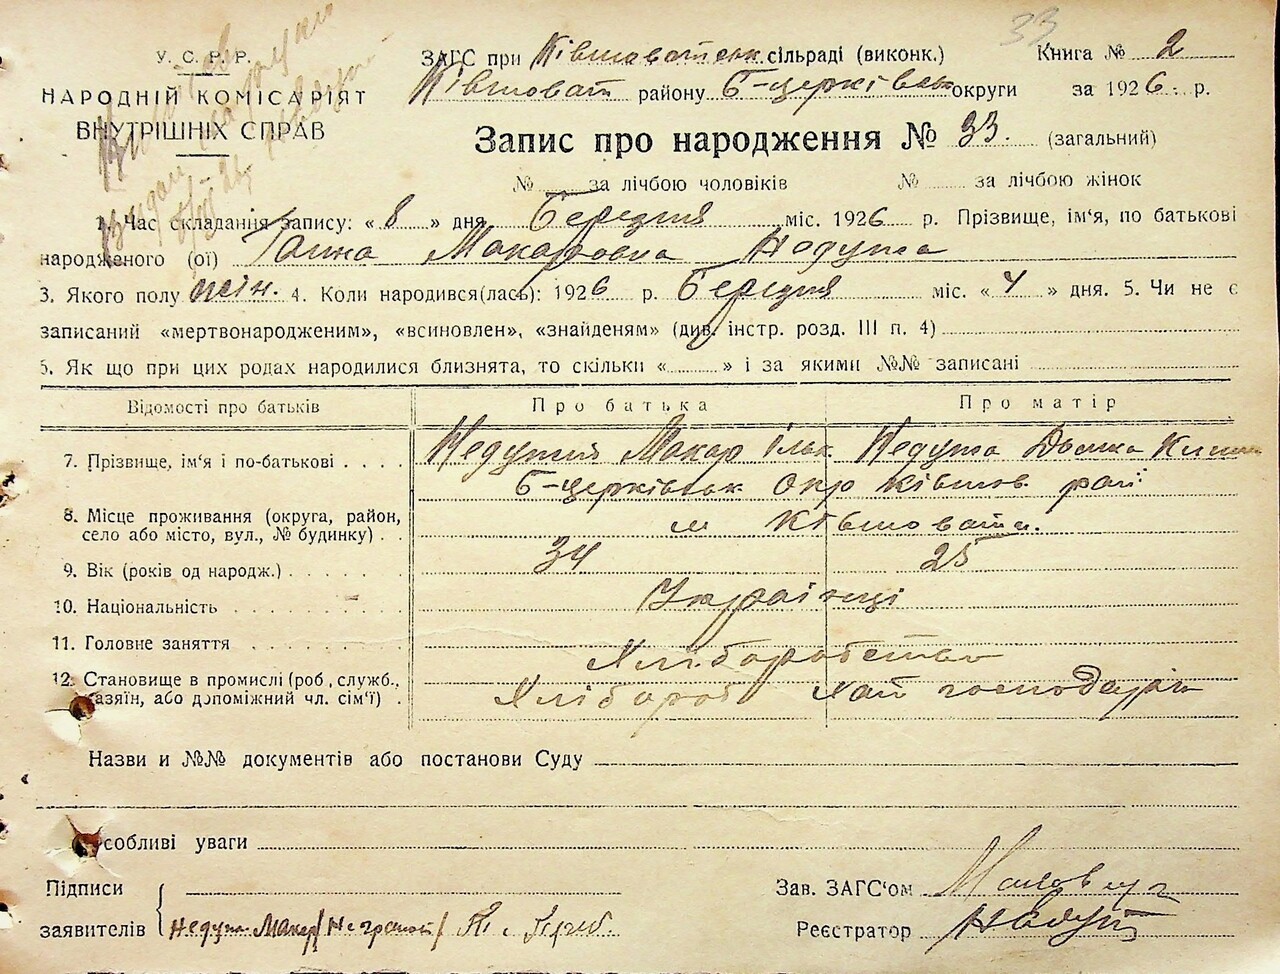 33
У. С. Р. Р.
НАРОДНІЙ КОМІСАРІЯТ
ВНУТРІШНІХ СПРАВ
ЗАГС при Ківшоватськ сільраді (виконк.) Книга № 2
Ківшоват району Б-церківськ округи за 1926 р.
Запис про народження № 33. (загальний)
№ за лічбою чоловіків № за лічбою жінок
1. Час складання запису: « 8 » дня Березня міс. 1926 р. Прізвище, ім'я, по батькові
народженого (ої) Ганна Макаровна Недута
3. Якого полу жін. 4. Коли народився(лась): 1926 р. Березня міс. « 4 » дня. 5. Чи не є
записаний «мертвонародженим», «всиновлен», «знайденям» (див. інстр. розд. III п. 4)
5. Як що при цих родах народилися близнята, то скільки « » і за якими №№ записані
Відомості про батьків Про батька Про матір
7. Прізвище, ім'я і по-батькові . . . . Недутий Макар Ільк Недута Домка
Б-церківськ Окр Ківшов. рай
8. Місце проживання (округа, район,
село або місто, вул., № будинку) . . м Ківшовата.
9. Вік (років од народж.) 34 25
10. Національність Українці
11. Головне заняття Хліборобство
12. Становище в промислі (роб., служб.,
хазяїн, або допоміжний чл. сім'ї) . Хлібороб Хат господарка
Назви и №№ документів або постанови Суду
Особливі уваги
Підписи
заявителів Недута Макар /Неграмот/
Зав. ЗАГС'ом
Реєстратор